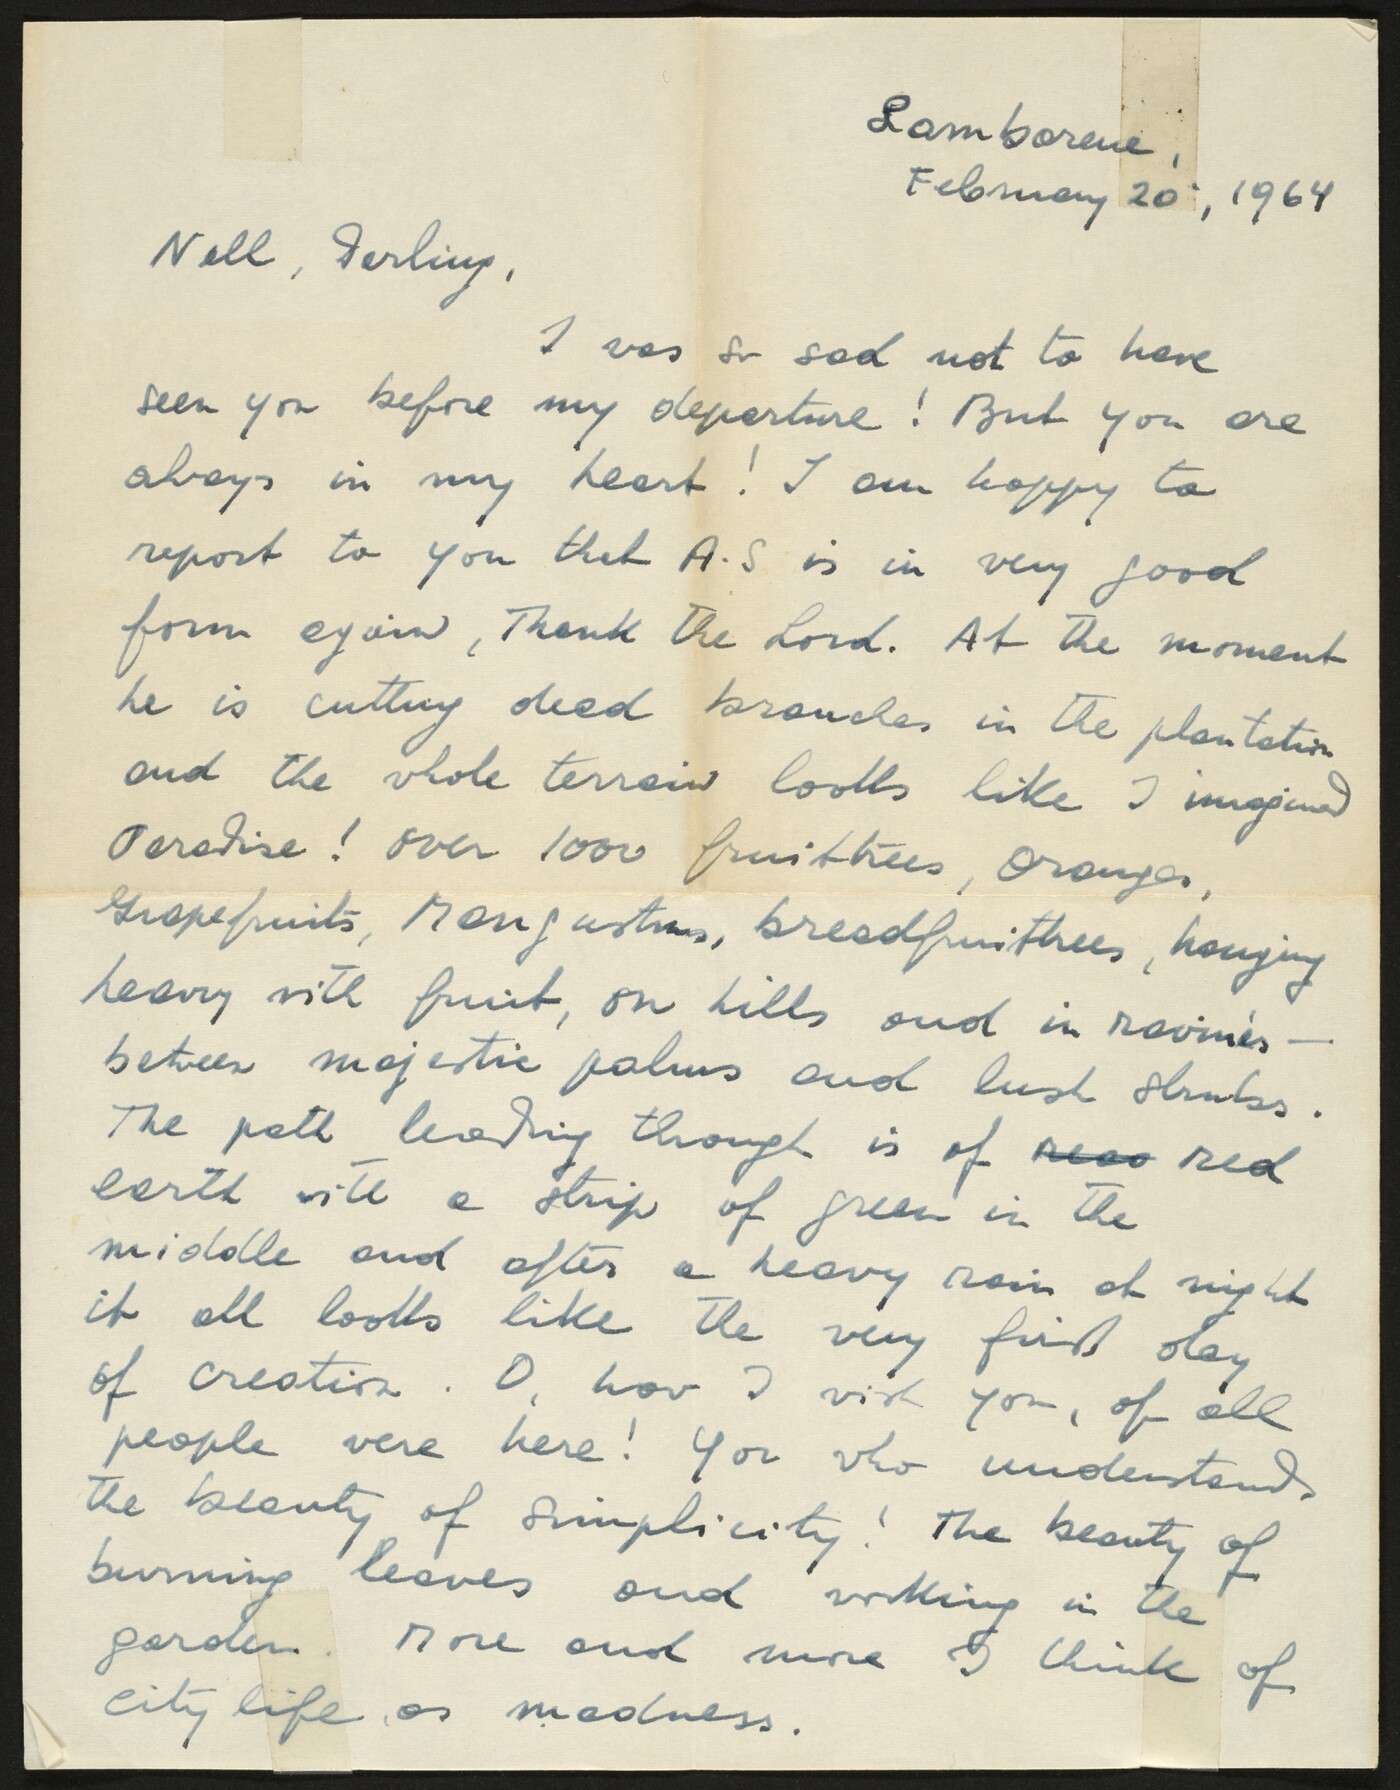 Lambarene,
February 20, 1964
Nell, Darling,
I was so sad not to have
seen you before my departure! But you are
always in my heart! I am happy to
report to you that A.S is in very good
form again, Thank the Lord. At the moment
he is cutting dead branches in the plantation
and the whole terrain looks like I imagined
Paradise! Over 1000 fruittrees, Oranges,
Grapefruits, Mangustins, breadfruittrees, hanging
heavy with fruit, on hills and in ravines —
between majestic palms and lush shrubs.
The path leading through is of red
earth with a strip of green in the
middle and after a heavy rain at night
it all looks like the very first day
of creation. O, how I wish you, of all
people were here! You who understands
the beauty of simplicity! The beauty of
burning leaves and working in the
garden. More and more I think of
city life as madness.